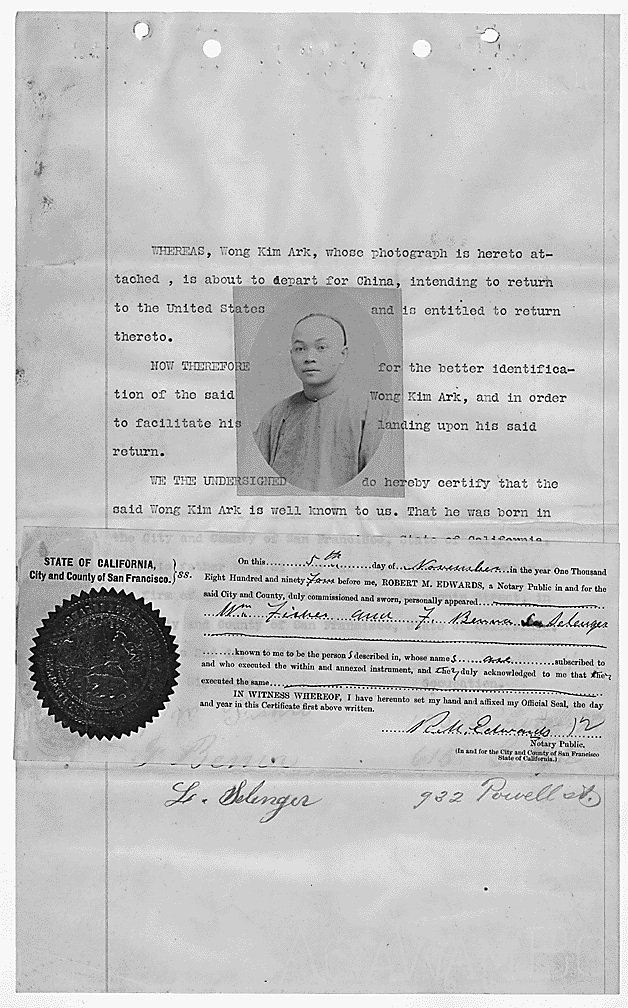 WHEREAS, Wong Kim Ark, whose photograph is hereto at-
tached , is about to depart for China, intending to return
to the United States and is entitled to return
thereto.
NOW THEREFORE for the better identifica-
tion of the said Wong Kim Ark, and in order
to facilitate his landing upon his said
return.
WE THE UNDERSIGNED do hereby certify that the
said Wong Kim Ark is well known to us. That he was born in
the City and County of San Francisco, State of California,
STATE OF CALIFORNIA,
City and County of San Francisco. } ss.
On this 5th day of November in the year One Thousand
Eight Hundred and ninety Four before me, ROBERT M. EDWARDS, a Notary Public in and for the
said City and County, duly commissioned and sworn, personally appeared
Wm Fisher and F. Benna Selenger
known to me to be the person s described in, whose name s are subscribed to
and who executed the within and annexed instrument, and they duly acknowledged to me that they
executed the same
IN WITNESS WHEREOF, I have hereunto set my hand and affixed my Official Seal, the day
and year in this Certificate first above written.
R. M. Edwards
Notary Public.
(In and for the City and County of San Francisco
State of California.)
L. Selenger 932 Powell st.